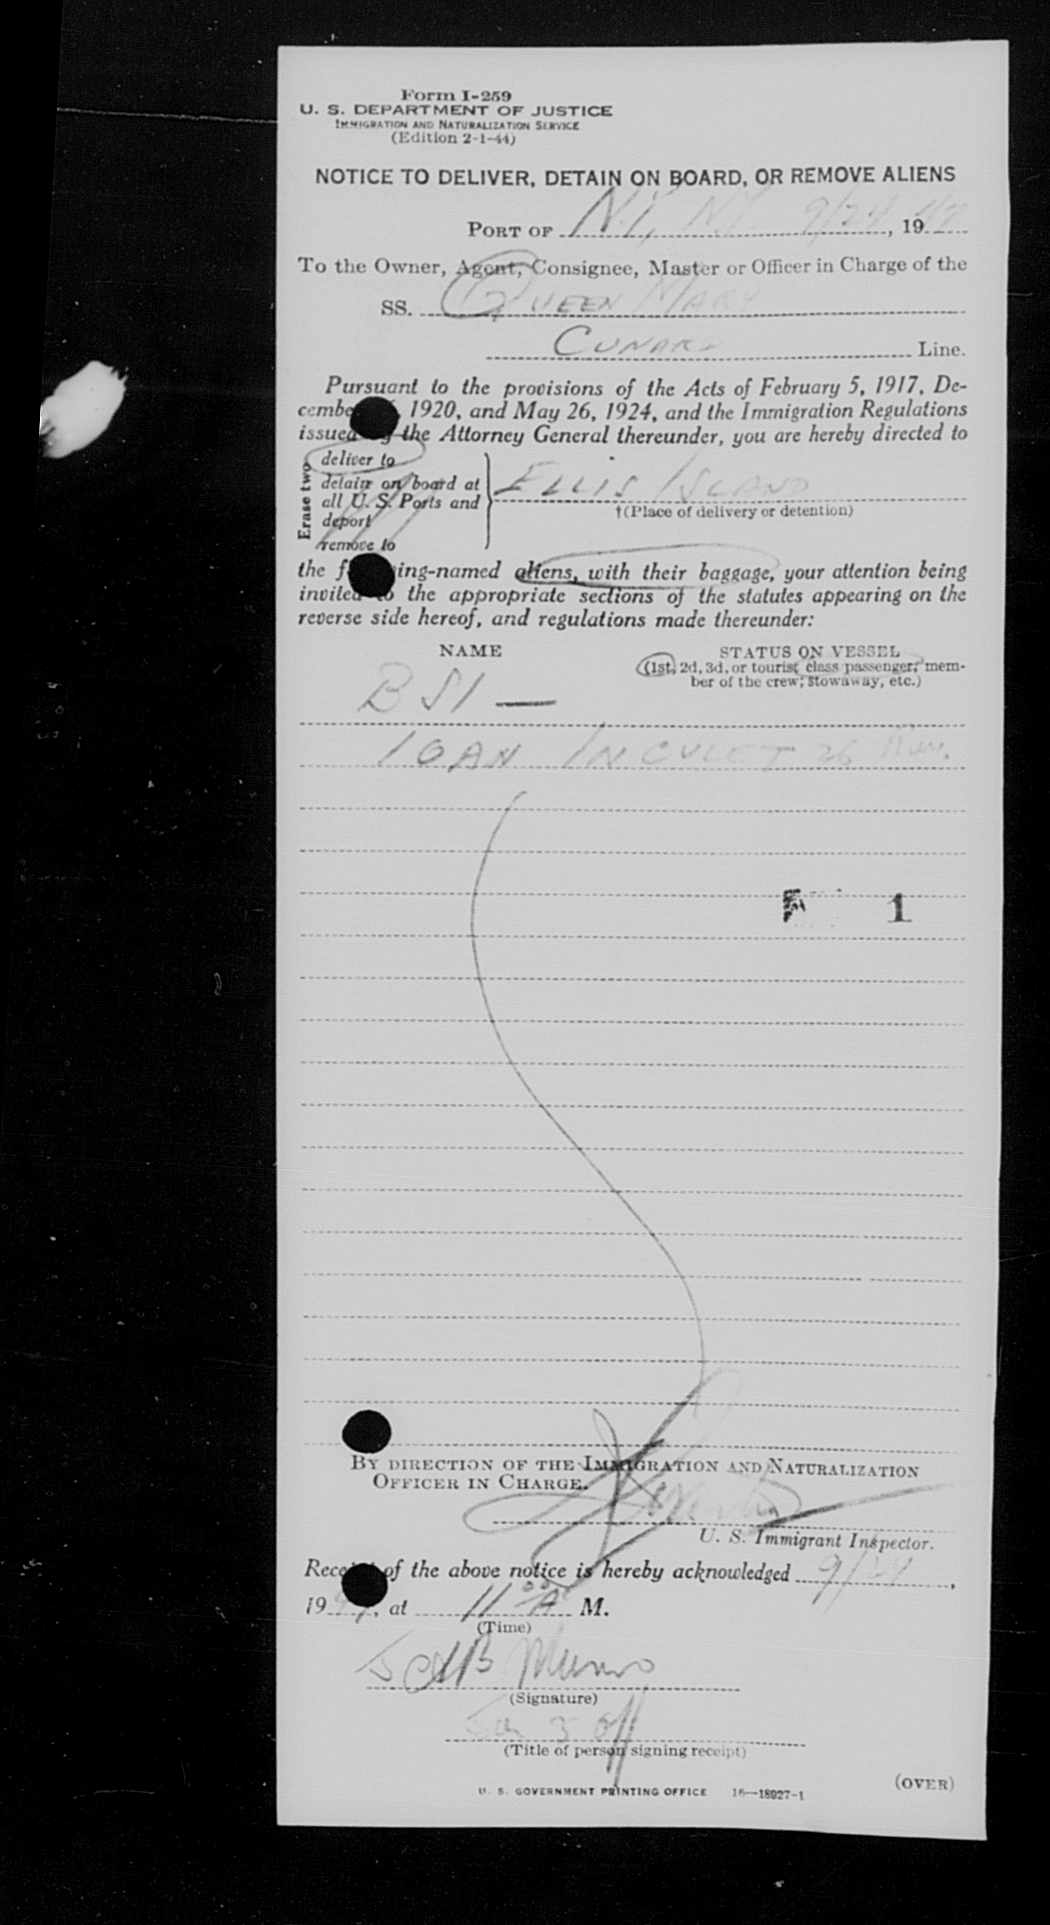 Form I-259
U. S. DEPARTMENT OF JUSTICE
IMMIGRATION AND NATURALIZATION SERVICE
(Edition 2-1-44)
NOTICE TO DELIVER, DETAIN ON BOARD, OR REMOVE ALIENS
PORT OF N.Y., N.Y. 9/24, 1947
To the Owner, Agent, Consignee, Master or Officer in Charge of the
SS. QUEEN MARY
CUNARD Line.
Pursuant to the provisions of the Acts of February 5, 1917, De-
cembe 1920, and May 26, 1924, and the Immigration Regulations
issued the Attorney General thereunder, you are hereby directed to
Erase two
deliver to
detain on board at
all U. S. Ports and
deport
remove to
ELLIS ISLAND
†(Place of delivery or detention)
the f ing-named aliens, with their baggage, your attention being
invited to the appropriate sections of the statutes appearing on the
reverse side hereof, and regulations made thereunder:
NAME STATUS ON VESSEL
(1st, 2d, 3d, or tourist class passenger, mem-
ber of the crew, stowaway, etc.)
BSI —
IOAN INCULET 26
1
BY DIRECTION OF THE IMMIGRATION AND NATURALIZATION
OFFICER IN CHARGE.
U. S. Immigrant Inspector.
Rece of the above notice is hereby acknowledged 9/24,
1947, at 11 00 A M.
(Time)
Munro
(Signature)
3 Off
(Title of person signing receipt)
(OVER)
U. S. GOVERNMENT PRINTING OFFICE 16—18927-1